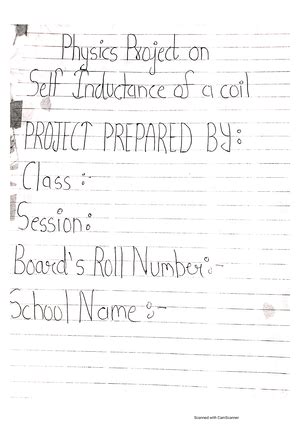 Physics Project on
Self Inductance of a coil
PROJECT PREPARED BY:
Class :-
Session:
Board's Roll Number:-
School Name :-
Scanned with CamScanner